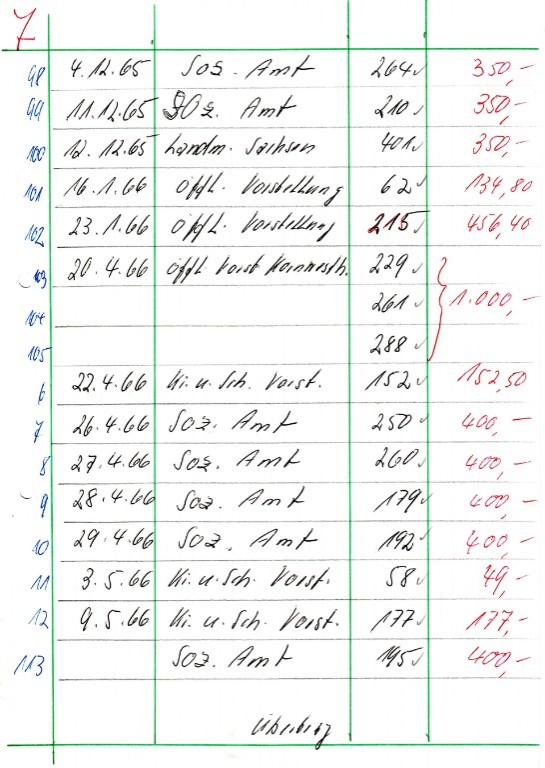 7
98 4.12.65 Soz. Amt 264 350,-
99 11.12.65 Soz. Amt 210 350,-
100 12.12.65 Landm. Sachsen 401 350,-
101 16.1.66 öffl. Vorstellung 62 134,80
102 23.1.66 öffl. Vorstellung 215 456,40
103 20.4.66 öffl. Vorst 229
104 261 1.000,-
105 288
6 22.4.66 Ki. u. Sch. Vorst. 152 152,50
7 26.4.66 Soz. Amt 250 400,-
8 27.4.66 Soz. Amt 260 400,-
9 28.4.66 Soz. Amt 179 400,-
10 29.4.66 Soz. Amt 192 400,-
11 3.5.66 Ki. u. Sch. Vorst. 58 49,-
12 9.5.66 Ki. u. Sch. Vorst. 177 177,-
113 Soz. Amt 195 400,-